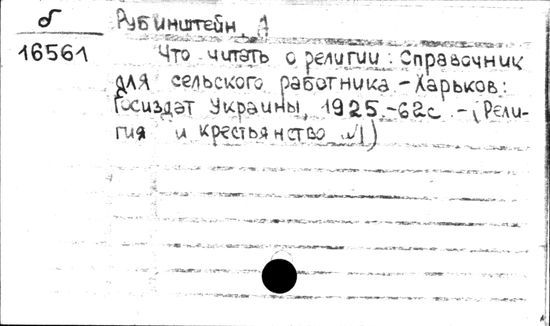 б Рубинштейн, Л
16561 Что читать о религии: Справочник
для сельского работника.-Харьков:
Госиздат Украины, 1925.-62с.-(Рели-
гия и крестьянство №1)